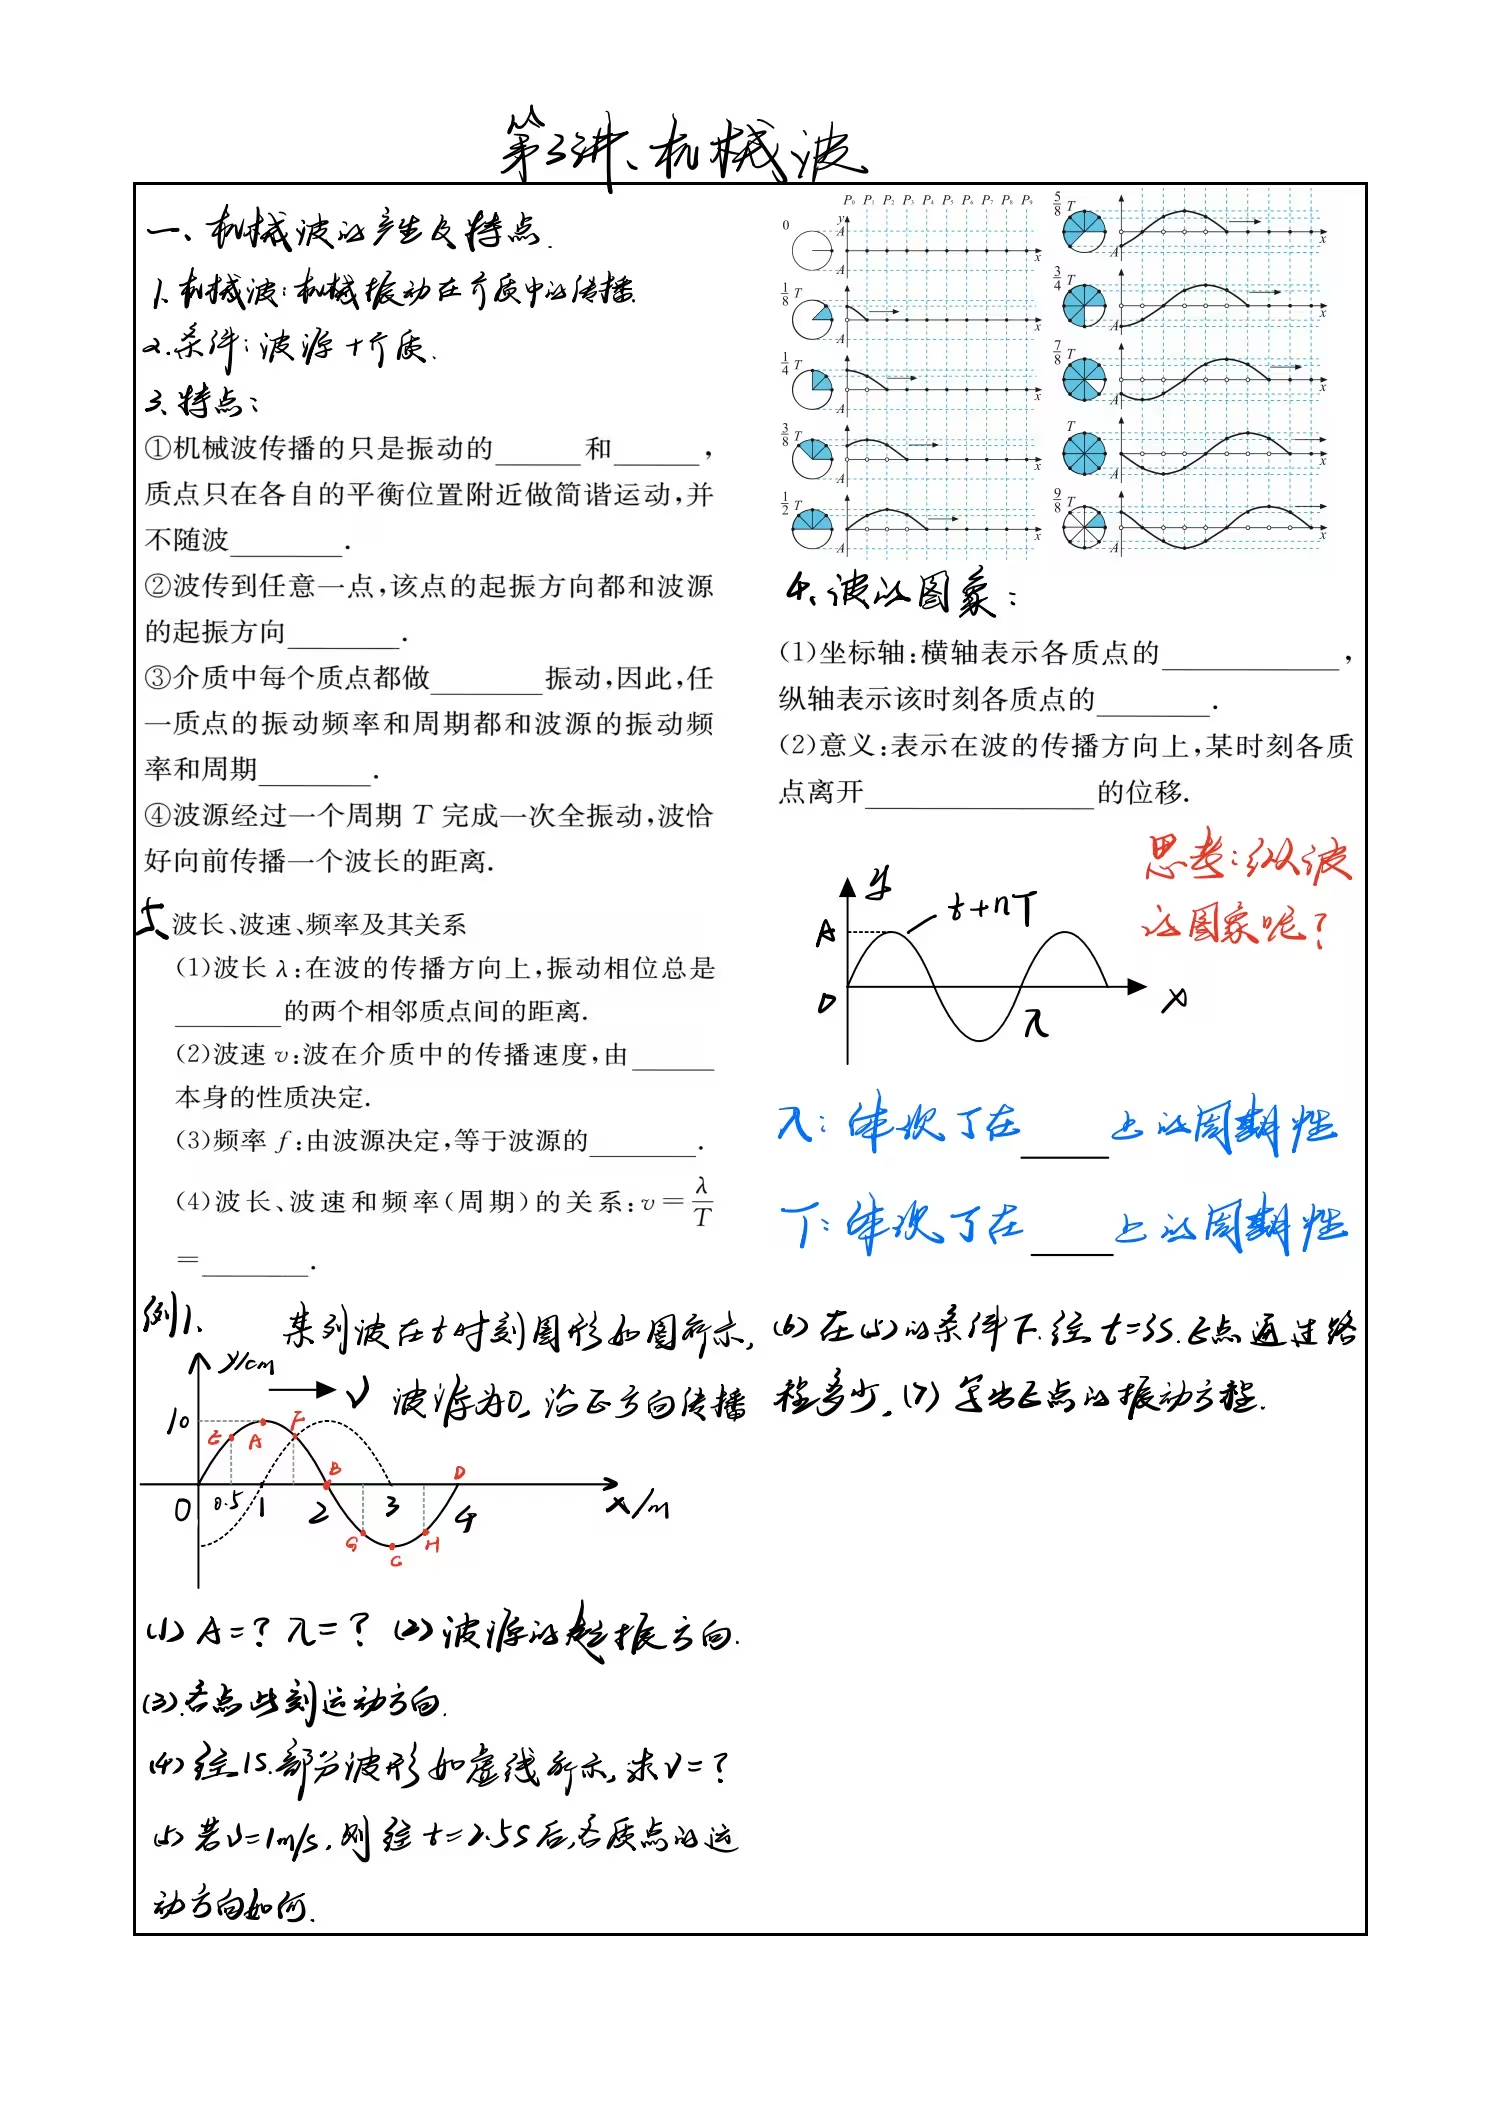 第3讲、机械波
一、机械波的产生及特点.
1、机械波:机械振动在介质中的传播.
2.条件:波源+介质.
3、特点:
①机械波传播的只是振动的______和______,
质点只在各自的平衡位置附近做简谐运动,并
不随波________.
②波传到任意一点,该点的起振方向都和波源
的起振方向________.
③介质中每个质点都做________振动,因此,任
一质点的振动频率和周期都和波源的振动频
率和周期________.
④波源经过一个周期 T 完成一次全振动,波恰
好向前传播一个波长的距离.
5、波长、波速、频率及其关系
(1)波长 λ:在波的传播方向上,振动相位总是
________的两个相邻质点间的距离.
(2)波速 v:波在介质中的传播速度,由______
本身的性质决定.
(3)频率 f:由波源决定,等于波源的________.
(4)波长、波速和频率(周期)的关系:v=λ/T
=________.
P₀ P₁ P₂ P₃ P₄ P₅ P₆ P₇ P₈ P₉
0 y A A x
1/8 T A x
1/4 T A x
3/8 T A x
1/2 T A x
5/8 T A x
3/4 T A x
7/8 T A x
T A x
9/8 T A x
4、波的图象:
(1)坐标轴:横轴表示各质点的____________,
纵轴表示该时刻各质点的________.
(2)意义:表示在波的传播方向上,某时刻各质
点离开________________的位移.
思考:纵波
的图象呢?
y
t+nT
A
0
λ
x
λ:体现了在____上的周期性
T:体现了在____上的周期性
例1、 某列波在t时刻图形如图所示,
波源为0,沿正方向传播
y/cm
v
10
E A F B D
0 0.5 1 2 3 4 x/m
G C H
(1) A=? λ=? (2)波源的起振方向.
(3).各点此刻运动方向.
(4)经1s.部分波形如虚线所示,求v=?
(5)若v=1m/s.则经t=2.5s后,各质点的运
动方向如何.
(6)在(5)的条件下.经t=3s.E点通过路
程多少, (7)写出E点的振动方程.